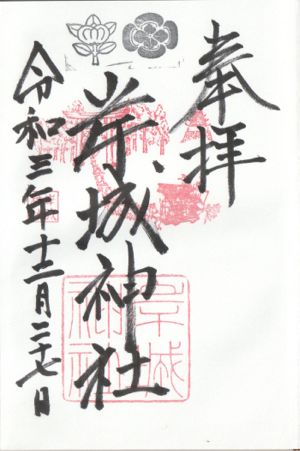 奉拝
岸城神社
令和三年十二月二十七日
岸城
神社